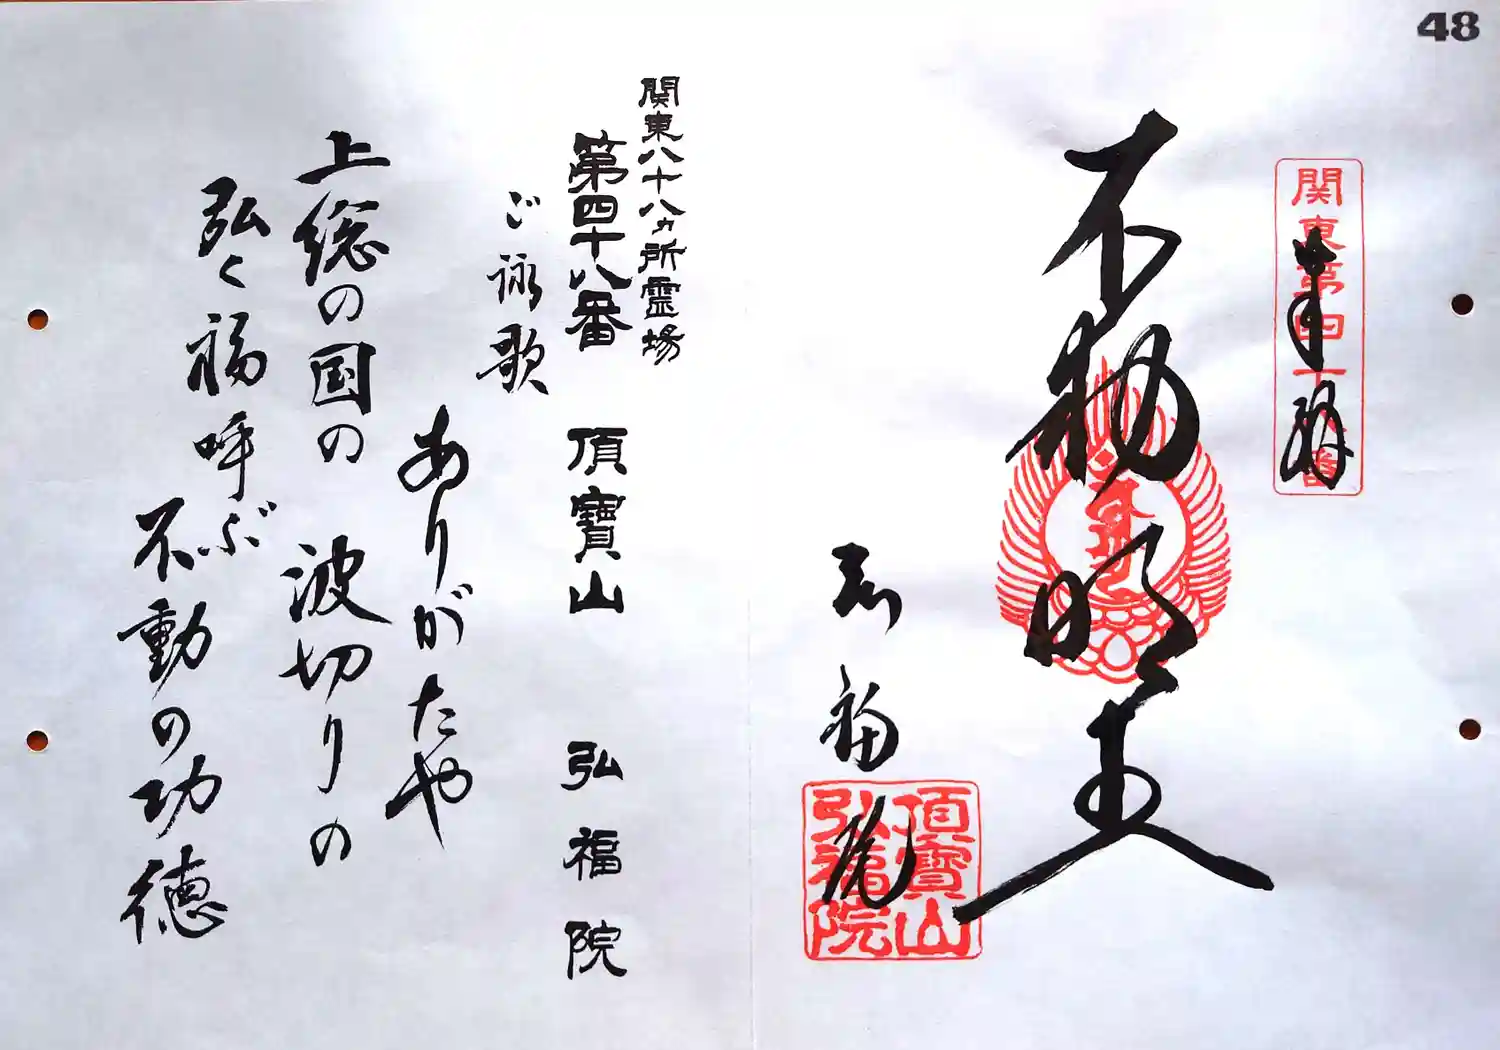 48
関東第四十八番
奉拝
不動明王
弘福院
頂寶山
弘福院
関東八十八ヵ所霊場
第四十八番 頂寶山 弘福院
ご詠歌
ありがたや
上総の国の 波切りの
弘く福呼ぶ
不動の功徳